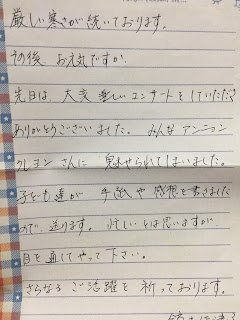 厳しい寒さが続いております。
その後 お元気ですか。
先日は、大変 楽しい コンサートを していただき
ありがとうございました。 みんな アンニョン
クレヨン さんに 魅せられてしまいました。
子ども達が 手紙や 感想を 書きました
ので、送ります。 忙しいとは思いますが
目を通してやって下さい。
さらなる ご活躍を 祈っております。